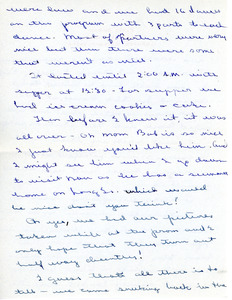 were two and we had 16 dances
on the program with 3 parts to each
dance. Most of partners were very
nice but then there were some
that weren't so nice.
It lasted until 2:00 A.M. with
supper at 12:30. For supper we
had ice cream cookies & coke.
Then before I knew it, it was
all over. Oh Mom Bub is so nice
I just know you'd like him. And
I might see him when I go down
to visit as he has a summer
home on Long Is. which would
be nice don't you think?
Oh yes, we had our pictures
taken while at the prom and I
only hope that they turn out
half way decently!
I guess that's all there is to
tell - we came back in the